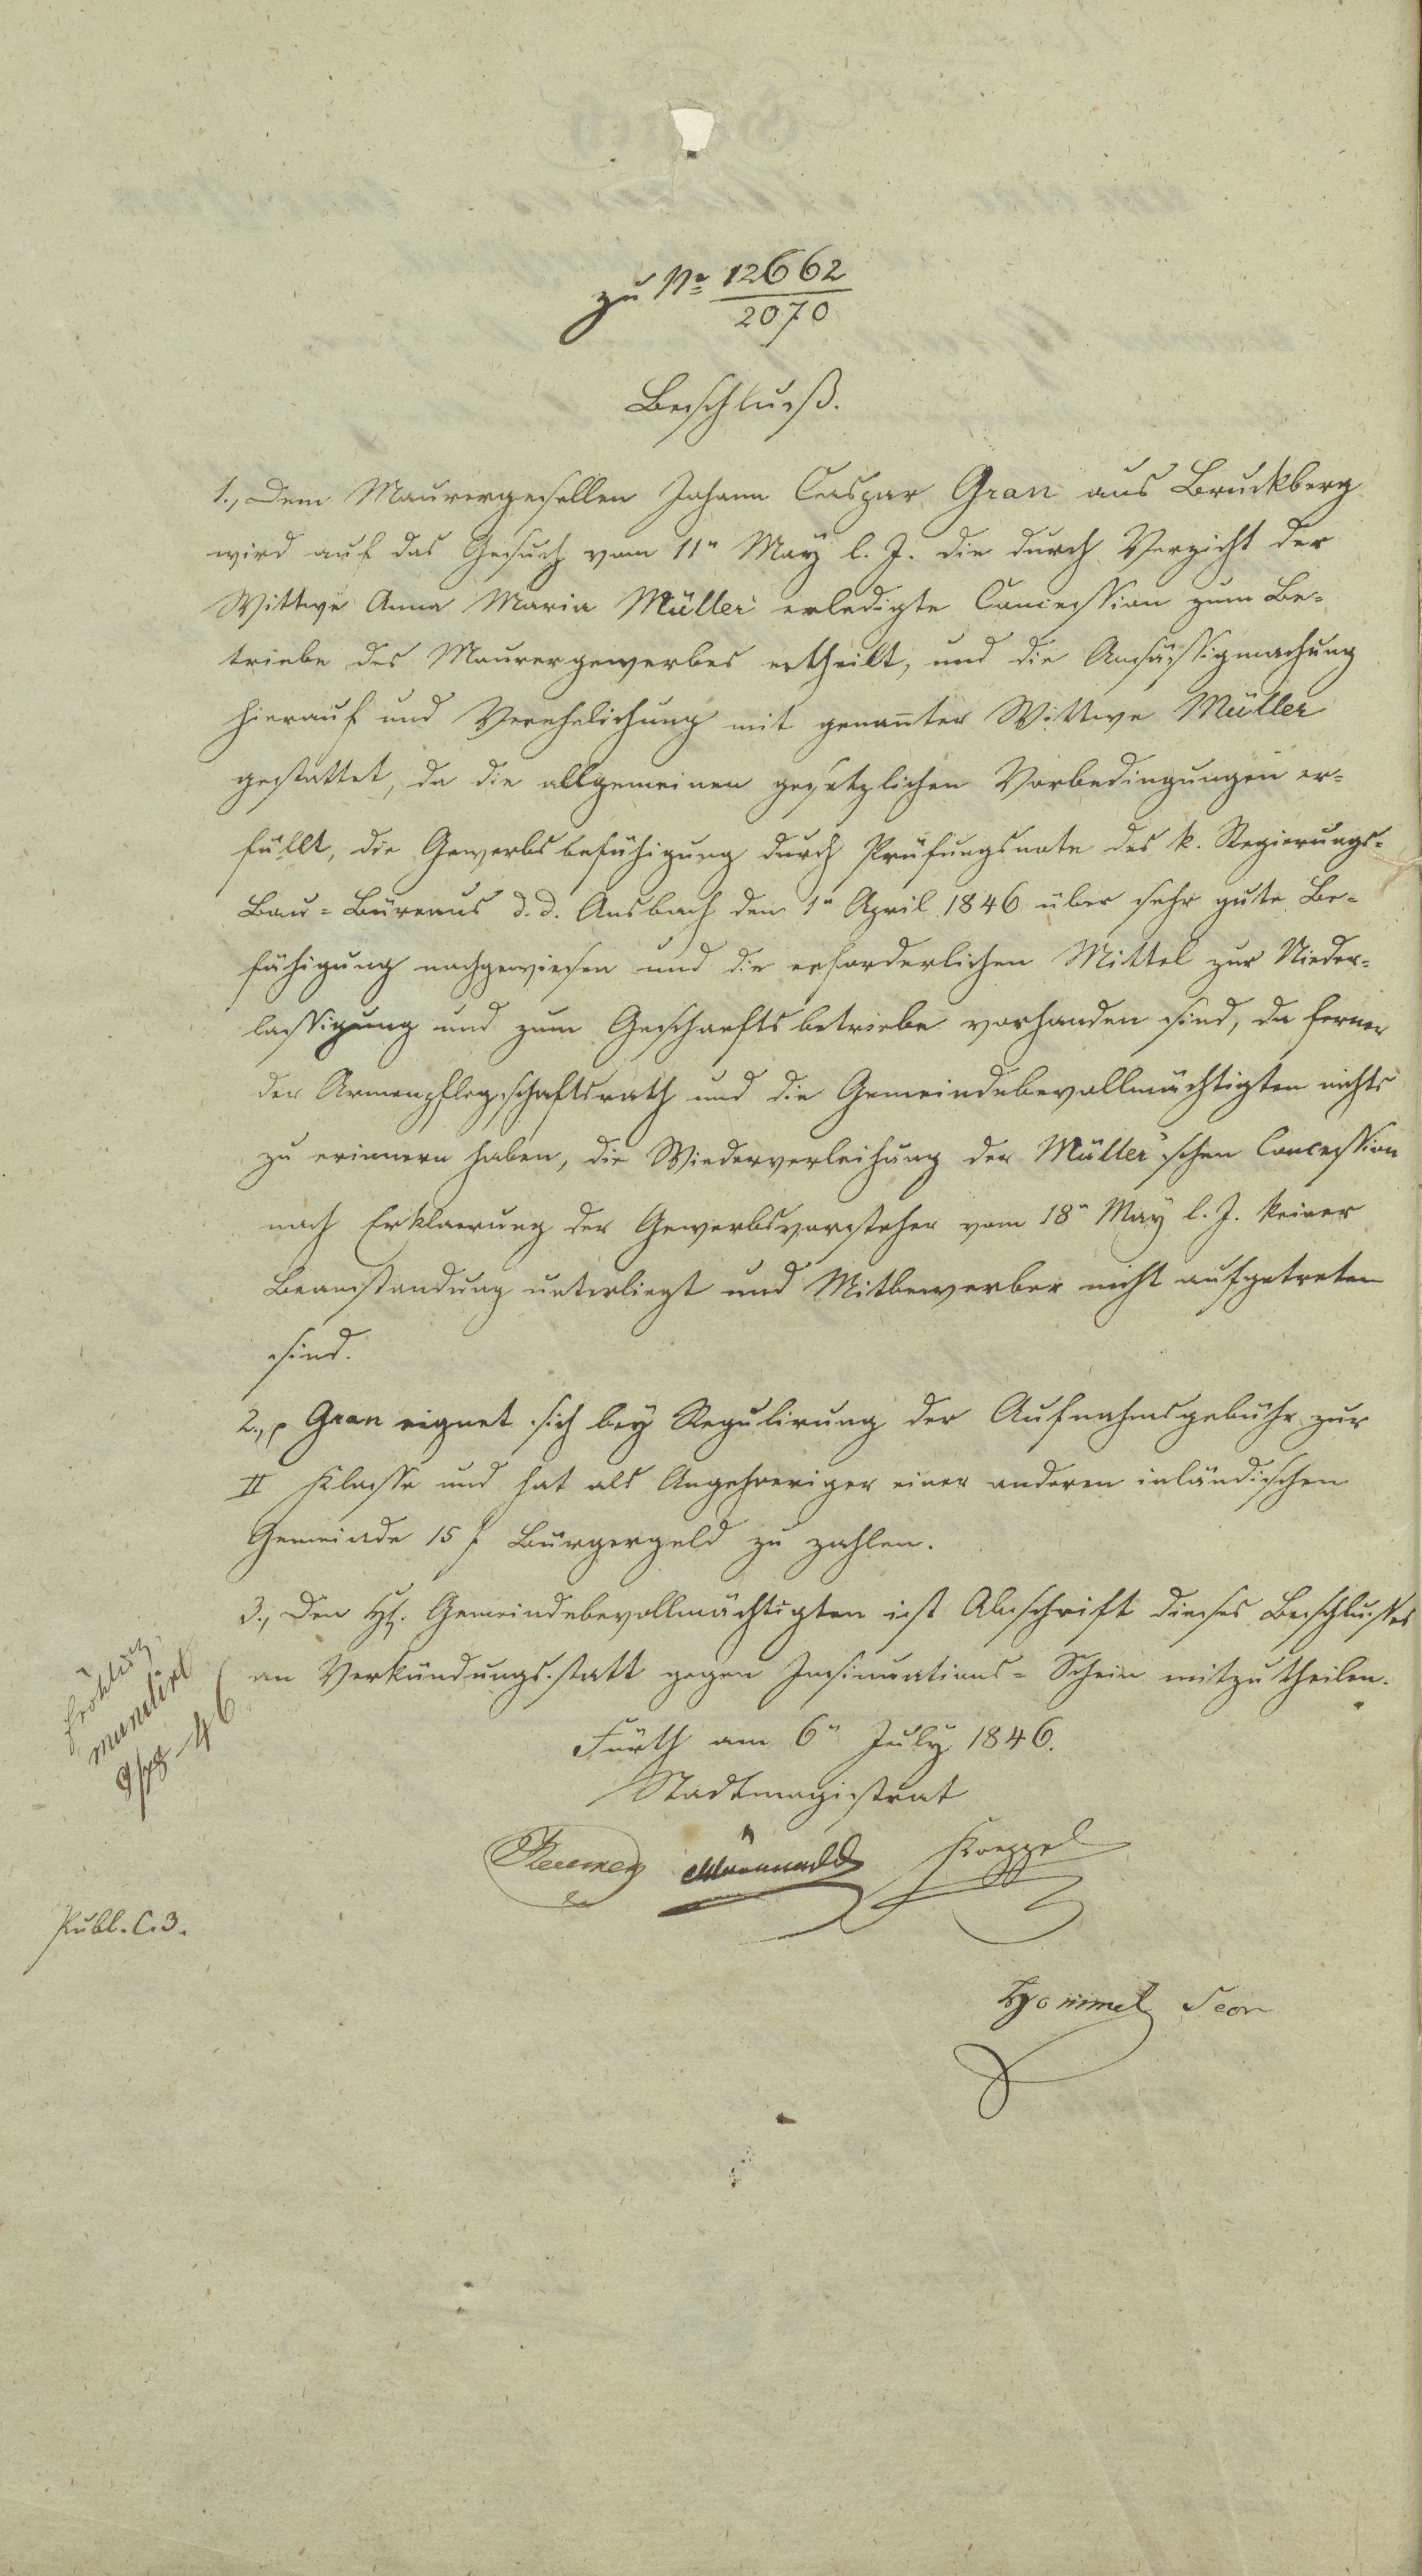 zu No 12662
2070
Beschluß.
1., Dem Maurergesellen Johann Caspar Gran aus Bruckberg
wird auf das Gesuch vom 11n May l. J. die durch Verzicht der
Wittwe Anna Maria Müller erledigte Concession zum Be-
triebe des Maurergewerbes ertheilt, und die Ansäßigmachung
hierauf und Verehelichung mit genanter Wittwe Müller
gestattet, da die allgemeinen gesetzlichen Vorbedingungen er-
füllt, die Gewerbsbefähigung durch Prüfungsnote des k. Regierungs-
Bau-Büreaus d. d. Ansbach den 1n April 1846 über sehr gute Be-
fähigung nachgewiesen und die erforderlichen Mittel zur Nieder-
lassigung und zum Geschaeftsbetriebe vorhanden sind, da ferner
der Armenpflegschaftsrath und die Gemeindebevollmächtigten nichts
zu erinnern haben, die Wiederverleihung der Müller'schen Concession
nach Erklaerung der Gewerbsvorsteher vom 18n May l. J. keiner
Beanstandung unterliegt und Mitbewerber nicht aufgetreten
sind.
2., p Gran eignet sich bey Regulirung der Aufnahmsgebühr zur
II Klasse und hat als Angehoeriger einer anderen inländischen
Gemeinde 15 f Bürgergeld zu zahlen.
3., Den H. Gemeindebevollmächtigten ist Abschrift dieses Beschlusses
an Verkündungsstatt gegen Insinuations-Schein mitzutheilen.
Fürth am 6n July 1846.
Stadtmagistrat
Koeppel
Hommel
mundirt
Publ. C. 3.